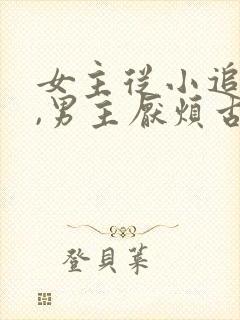 女主從小追
,男主厭煩古
登貝萊